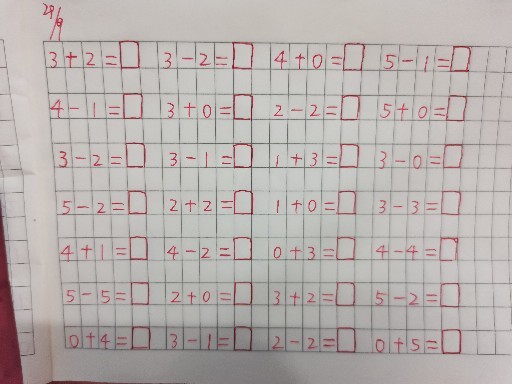 29/9
3+2=□ 3-2=□ 4+0=□ 5-1=□
4-1=□ 3+0=□ 2-2=□ 5+0=□
3-2=□ 3-1=□ 1+3=□ 3-0=□
5-2=□ 2+2=□ 1+0=□ 3-3=□
4+1=□ 4-2=□ 0+3=□ 4-4=□
5-5=□ 2+0=□ 3+2=□ 5-2=□
0+4=□ 3-1=□ 2-2=□ 0+5=□